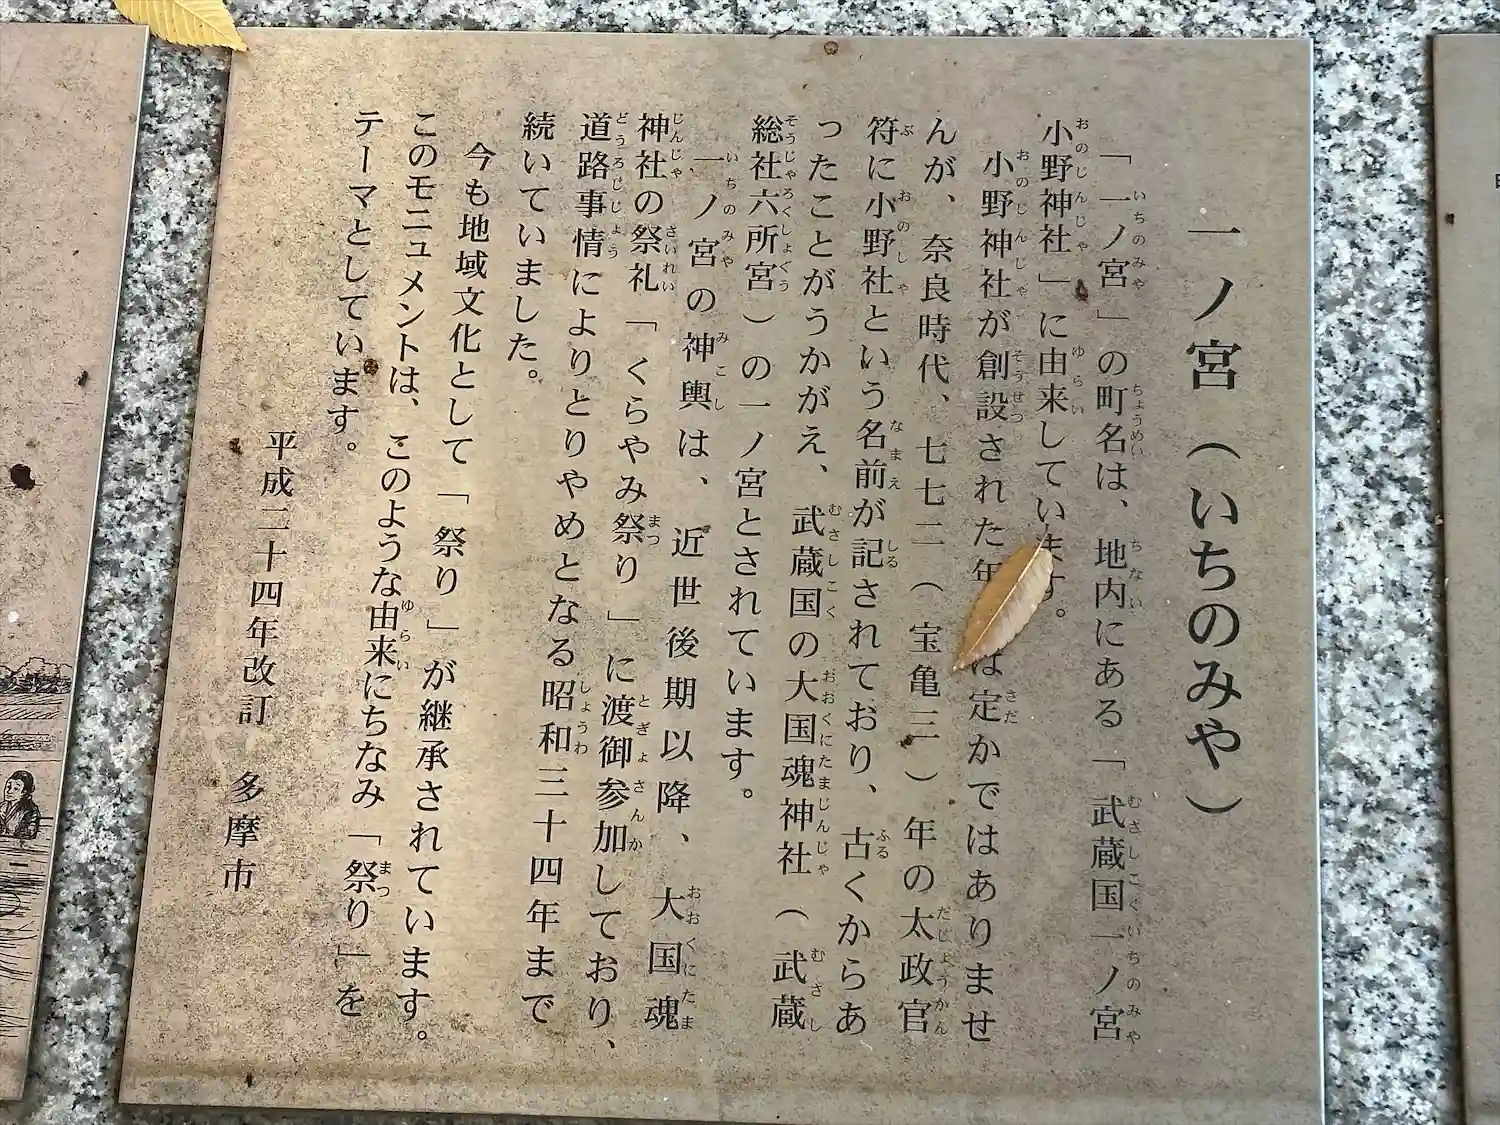 一ノ宮（いちのみや）
「一ノ宮」の町名は、地内にある「武蔵国一ノ宮
小野神社」に由来しています。
小野神社が創設された年は定かではありませ
んが、奈良時代、七七二（宝亀三）年の太政官
符に小野社という名前が記されており、古くからあ
ったことがうかがえ、武蔵国の大国魂神社（武蔵
総社六所宮）の一ノ宮とされています。
一ノ宮の神輿は、近世後期以降、大国魂
神社の祭礼「くらやみ祭り」に渡御参加しており、
道路事情によりとりやめとなる昭和三十四年まで
続いていました。
今も地域文化として「祭り」が継承されています。
このモニュメントは、このような由来にちなみ「祭り」を
テーマとしています。
平成二十四年改訂 多摩市